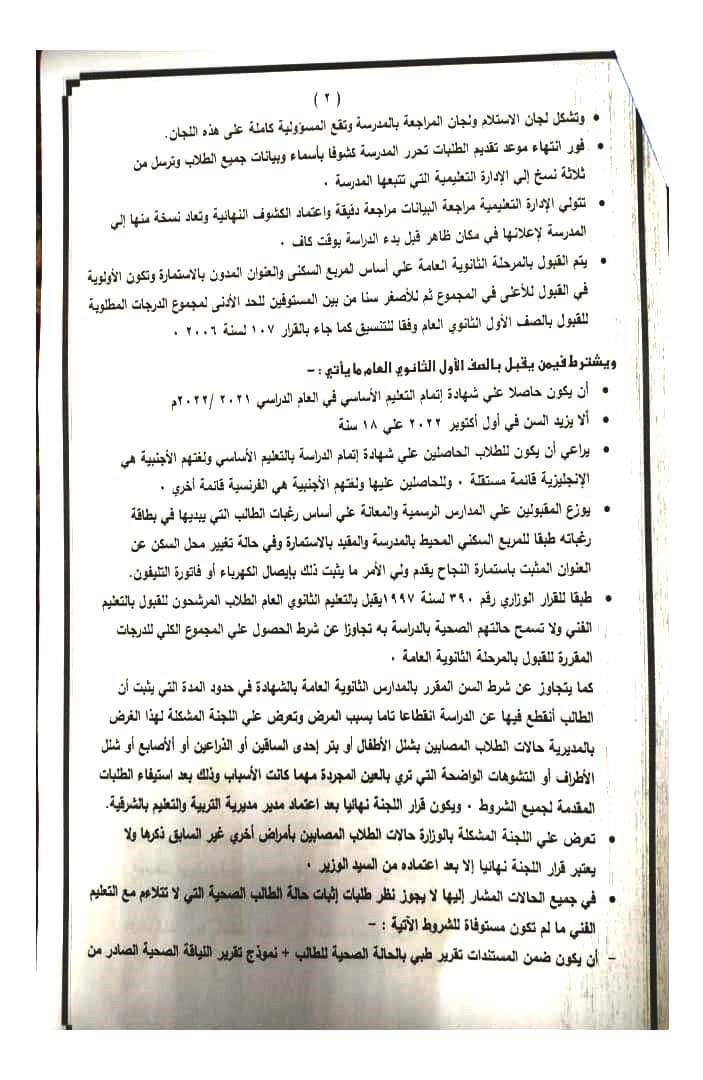 ( ٢ )
• وتشكل لجان الاستلام ولجان المراجعة بالمدرسة وتقع المسؤولية كاملة على هذه اللجان.
• فور انتهاء موعد تقديم الطلبات تحرر المدرسة كشوفا بأسماء وبيانات جميع الطلاب وترسل من
ثلاثة نسخ إلي الإدارة التعليمية التي تتبعها المدرسة ٠
• تتولي الإدارة التعليمية مراجعة البيانات مراجعة دقيقة واعتماد الكشوف النهائية وتعاد نسخة منها إلي
المدرسة لإعلانها في مكان ظاهر قبل بدء الدراسة بوقت كاف ٠
• يتم القبول بالمرحلة الثانوية العامة علي أساس المربع السكنى والعنوان المدون بالاستمارة وتكون الأولوية
في القبول للأعلى في المجموع ثم للأصغر سنا من بين المستوفين للحد الأدنى لمجموع الدرجات المطلوبة
للقبول بالصف الأول الثانوي العام وفقا للتنسيق كما جاء بالقرار ١٠٧ لسنة ٢٠٠٦ ٠
ويشترط فيمن يقبل بالصف الأول الثانوي العام ما يأتي : -
• أن يكون حاصلا علي شهادة إتمام التعليم الأساسي في العام الدراسي ٢٠٢١ /٢٠٢٢م
• ألا يزيد السن في أول أكتوبر ٢٠٢٢ علي ١٨ سنة
• يراعي أن يكون للطلاب الحاصلين علي شهادة إتمام الدراسة بالتعليم الأساسي ولغتهم الأجنبية هي
الإنجليزية قائمة مستقلة ٠ وللحاصلين عليها ولغتهم الأجنبية هي الفرنسية قائمة أخري ٠
• يوزع المقبولين علي المدارس الرسمية والمعانة علي أساس رغبات الطالب التي يبديها في بطاقة
رغباته طبقا للمربع السكني المحيط بالمدرسة والمقيد بالاستمارة وفي حالة تغيير محل السكن عن
العنوان المثبت باستمارة النجاح يقدم ولي الأمر ما يثبت ذلك بإيصال الكهرباء أو فاتورة التليفون.
• طبقا للقرار الوزاري رقم ٣٩٠ لسنة ١٩٩٧يقبل بالتعليم الثانوي العام الطلاب المرشحون للقبول بالتعليم
الفني ولا تسمح حالتهم الصحية بالدراسة به تجاوزا عن شرط الحصول علي المجموع الكلي للدرجات
المقررة للقبول بالمرحلة الثانوية العامة ٠
كما يتجاوز عن شرط السن المقرر بالمدارس الثانوية العامة بالشهادة في حدود المدة التي يثبت أن
الطالب أنقطع فيها عن الدراسة انقطاعا تاما بسبب المرض وتعرض علي اللجنة المشكلة لهذا الغرض
بالمديرية حالات الطلاب المصابين بشلل الأطفال أو بتر إحدى الساقين أو الذراعين أو ألأصابع أو شلل
الأطراف أو التشوهات الواضحة التي تري بالعين المجردة مهما كانت الأسباب وذلك بعد استيفاء الطلبات
المقدمة لجميع الشروط ٠ ويكون قرار اللجنة نهائيا بعد اعتماد مدير مديرية التربية والتعليم بالشرقية.
• تعرض علي اللجنة المشكلة بالوزارة حالات الطلاب المصابين بأمراض أخري غير السابق ذكرها ولا
يعتبر قرار اللجنة نهائيا إلا بعد اعتماده من السيد الوزير ٠
• في جميع الحالات المشار إليها لا يجوز نظر طلبات إثبات حالة الطالب الصحية التي لا تتلاءم مع التعليم
الفني ما لم تكون مستوفاة للشروط الآتية : -
- أن يكون ضمن المستندات تقرير طبي بالحالة الصحية للطالب + نموذج تقرير اللياقة الصحية الصادر من